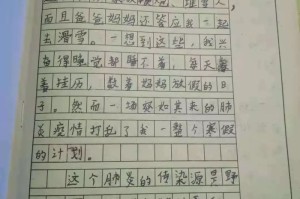 堆雪人，
而且爸爸妈妈还答应我一起
去滑雪。一想到这些，我兴
奋得睡觉都睡不着，每天
着挂历，数着妈妈放假的日
子。然而一场突如其来的肺
炎疫情打乱了我一整个寒假
的计划。
这个肺炎的传染源是野